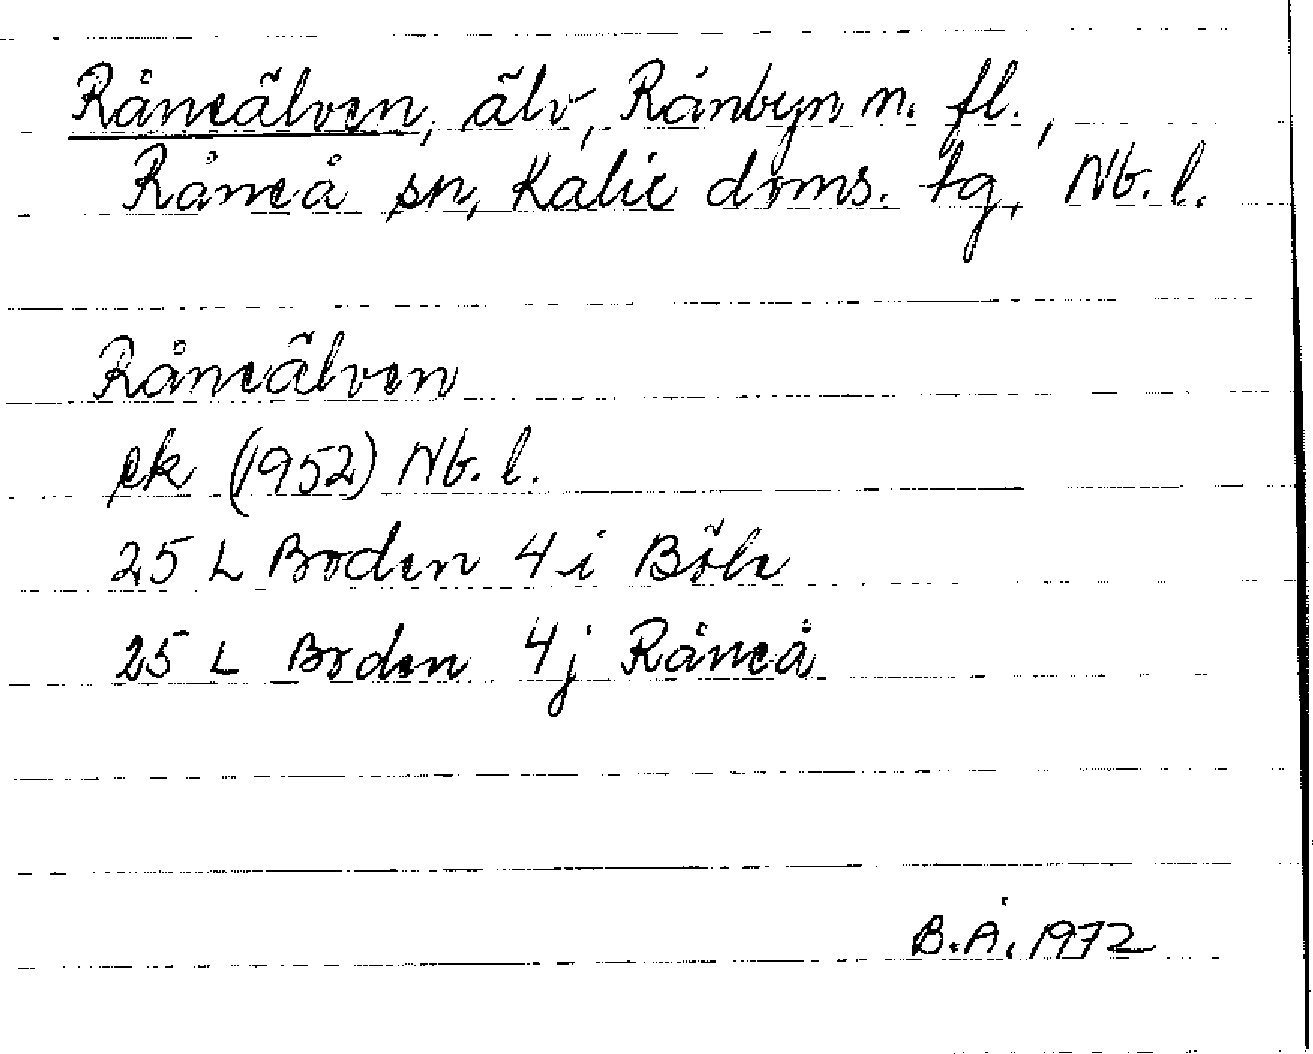 Råneälven, älv, Rånbyn m. fl.,
Råneå sn, Kalix doms. tg, Nb. l.
Råneälven
ek (1952) Nb. l.
25 L Boden 4 i Böle
25 L Boden 4 j Råneå
B.Å. 1972